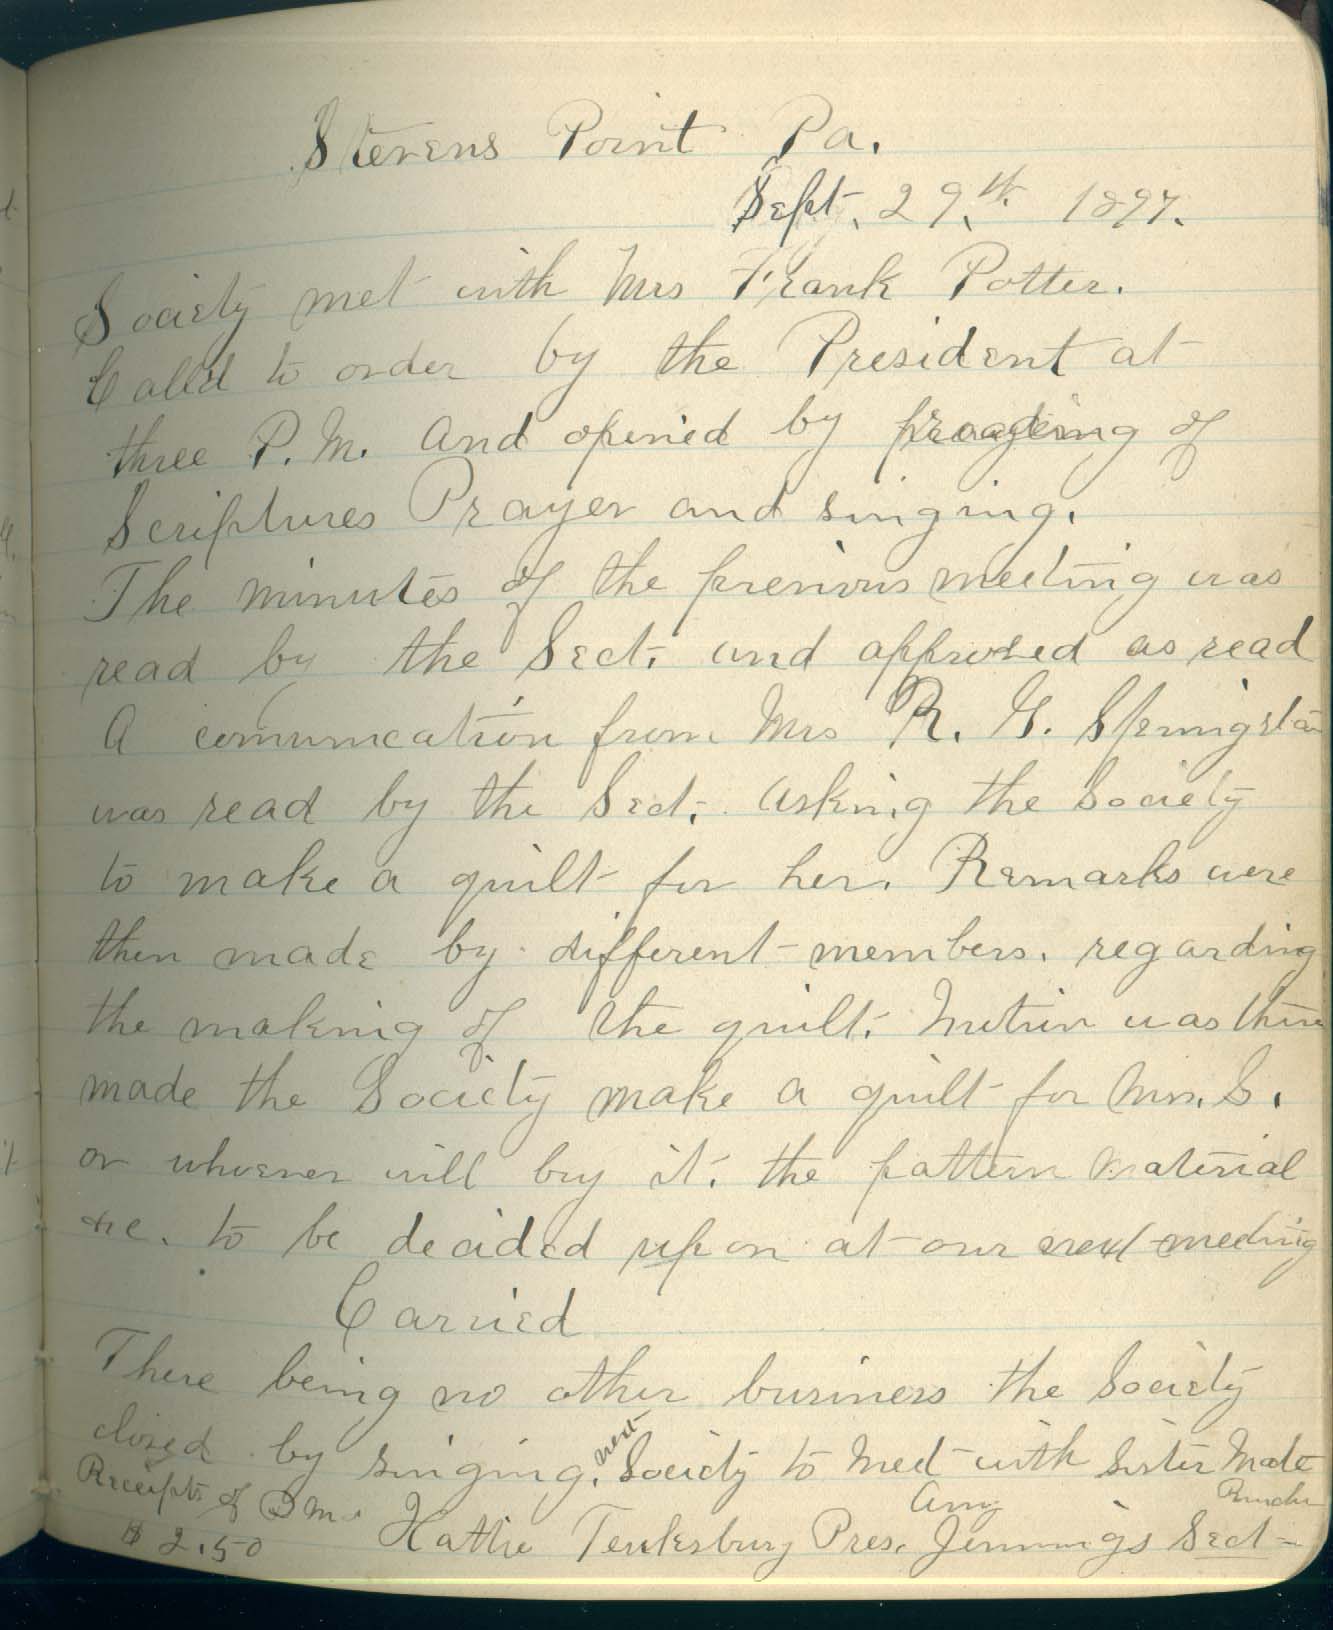 Stevens Point Pa.
Sept. 29.th 1897.
Society met with Mrs Frank Potter.
Calld to order by the President at
three P.M. and opened by of
Scriptures Prayer and singing.
The minutes of the previous meeting was
read by the Sect. and approved as read
A comunication from Mrs R. G.
was read by the Sect. asking the Society
to make a quilt for her. Remarks were
then made by different members. regarding
the making of the quilt. Motion was then
made the Society make a quilt for Mrs. S.
or whoever will buy it. the pattern material
&c. to be decided upon at our next meeting
Carried
There being no other business the Society
closed by singing. next Society to meet with Sister
Receipts of
$ 2.50 Hattie Tewksbury Pres. Amy Jennings Sect